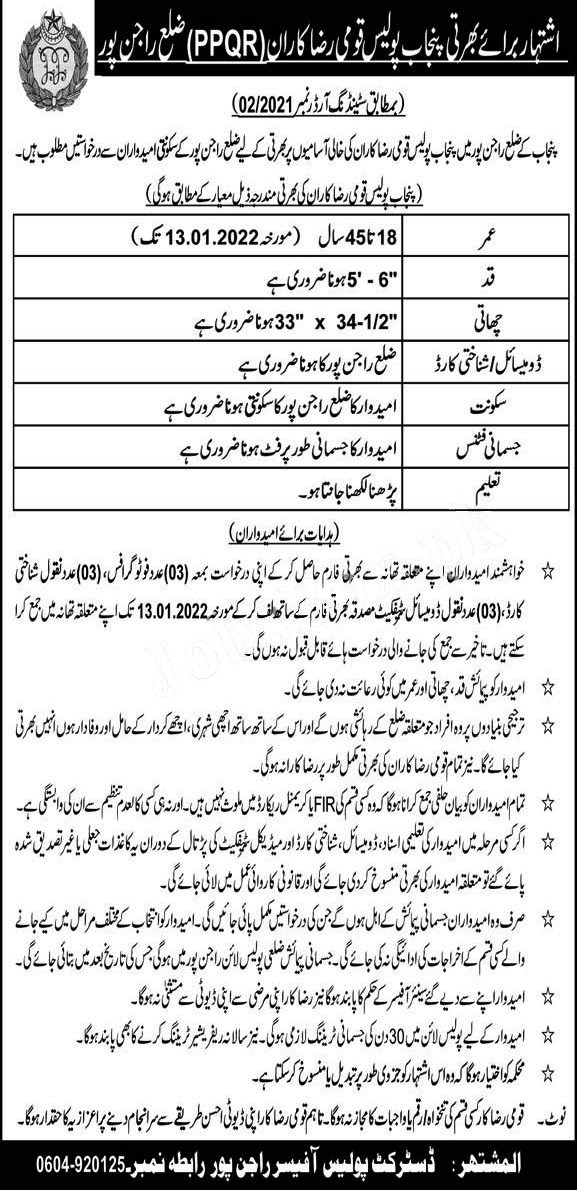 اشتہار برائے بھرتی پنجاب پولیس قومی رضاکاران (PPQR) ضلع راجن پور
(بمطابق سٹینڈنگ آرڈر نمبر 02/2021)
پنجاب کے ضلع راجن پور میں پنجاب پولیس قومی رضا کاران کی خالی آسامیوں پر بھرتی کے لیے ضلع راجن پور کے سکونتی امیدواران سے درخواستیں مطلوب ہیں۔
(پنجاب پولیس قومی رضا کاران کی بھرتی مندرجہ ذیل معیار کے مطابق ہوگی)
عمر 18 تا 45 سال (مورخہ 13.01.2022 تک)
قد 5' - 6" ہونا ضروری ہے
چھاتی 33" x 34-1/2" ہونا ضروری ہے
ڈومیسائل/شناختی کارڈ ضلع راجن پور کا ہونا ضروری ہے
سکونت امیدوار کا ضلع راجن پور کا سکونتی ہونا ضروری ہے
جسمانی فٹنس امیدوار کا جسمانی طور پر فٹ ہونا ضروری ہے
تعلیم پڑھنا لکھنا جانتا ہو۔
(ہدایات برائے امیدواران)
☆ خواہشمند امیدواران اپنے متعلقہ تھانہ سے بھرتی فارم حاصل کر کے اپنی درخواست بمعہ (03) عدد فوٹوگرافس، (03) عدد نقول شناختی
کارڈ، (03) عدد نقول ڈومیسائل سرٹیفکیٹ مصدقہ بھرتی فارم کے ساتھ لف کر کے مورخہ 13.01.2022 تک اپنے متعلقہ تھانہ میں جمع کرا
سکتے ہیں۔ تاخیر سے جمع کی جانے والی درخواست ہائے قابل قبول نہ ہوں گی۔
☆ امیدوار کو پیمائش قد، چھاتی اور عمر میں کوئی رعائت نہ دی جائے گی۔
☆ ترجیحی بنیادوں پر وہ افراد جو متعلقہ ضلع کے رہائشی ہوں گے اور اس کے ساتھ ساتھ اچھی شہری، اچھے کردار کے حامل اور وفادار ہوں انہیں بھرتی
کیا جائے گا۔ نیز تمام قومی رضا کاران کی بھرتی مکمل طور پر رضا کارانہ ہوگی۔
☆ تمام امیدواران کو بیان حلفی جمع کرانا ہوگا کہ وہ کسی قسم کی FIR یا کریمنل ریکارڈ میں ملوث نہیں ہیں۔ اور نہ ہی کسی کالعدم تنظیم سے ان کی وابستگی ہے۔
☆ اگر کسی مرحلہ میں امیدوار کی تعلیمی اسناد، ڈومیسائل، شناختی کارڈ اور میڈیکل سرٹیفکیٹ کی پڑتال کے دوران یہ کاغذات جعلی یا غیر تصدیق شدہ
پائے گئے تو متعلقہ امیدوار کی بھرتی منسوخ کر دی جائے گی اور قانونی کاروائی عمل میں لائی جائے گی۔
☆ صرف وہ امیدواران جسمانی پیمائش کے اہل ہوں گے جن کی درخواستیں مکمل پائی جائیں گی۔ امیدوار کو انتخاب کے مختلف مراحل میں کیے جانے
والے کسی قسم کے اخراجات کی ادائیگی نہ کی جائے گی۔ جسمانی پیمائش ضلعی پولیس لائن راجن پور میں ہوگی جس کی تاریخ بعد میں بتائی جائے گی۔
☆ امیدوار اپنے سے دیے گئے سینئر آفیسر کے حکم کا پابند ہوگا نیز رضا کار اپنی مرضی سے اپنی ڈیوٹی سے مستثنیٰ نہ ہوگا۔
☆ امیدوار کے لیے پولیس لائن میں 30 دن کی جسمانی ٹریننگ لازمی ہوگی۔ نیز سالانہ ریفریشر ٹریننگ کرنے کا بھی پابند ہوگا۔
☆ محکمہ کو اختیار ہوگا کہ وہ اس اشتہار کو جزوی طور پر تبدیل یا منسوخ کر سکتا ہے۔
نوٹ۔ قومی رضا کار کسی قسم کی تنخواہ/رقم یا واجبات کا مجاز نہ ہوگا۔ تاہم قومی رضا کار اپنی ڈیوٹی احسن طریقے سے سرانجام دینے پر اعزازیہ کا حقدار ہوگا۔
المشتہر: ڈسٹرکٹ پولیس آفیسر راجن پور رابطہ نمبر۔ 0604-920125